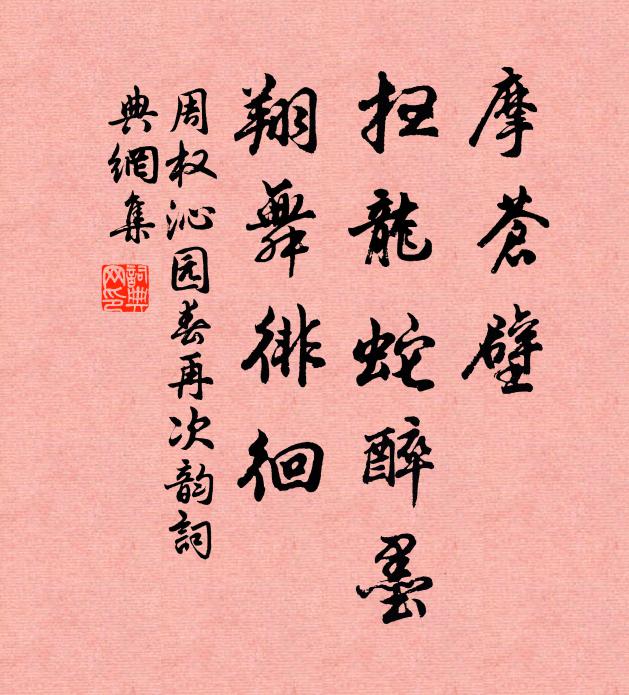 摩苍壁
扫龙蛇醉墨
翔舞徘徊
周权沁园春再次韵詞
典網集
詞典
网印